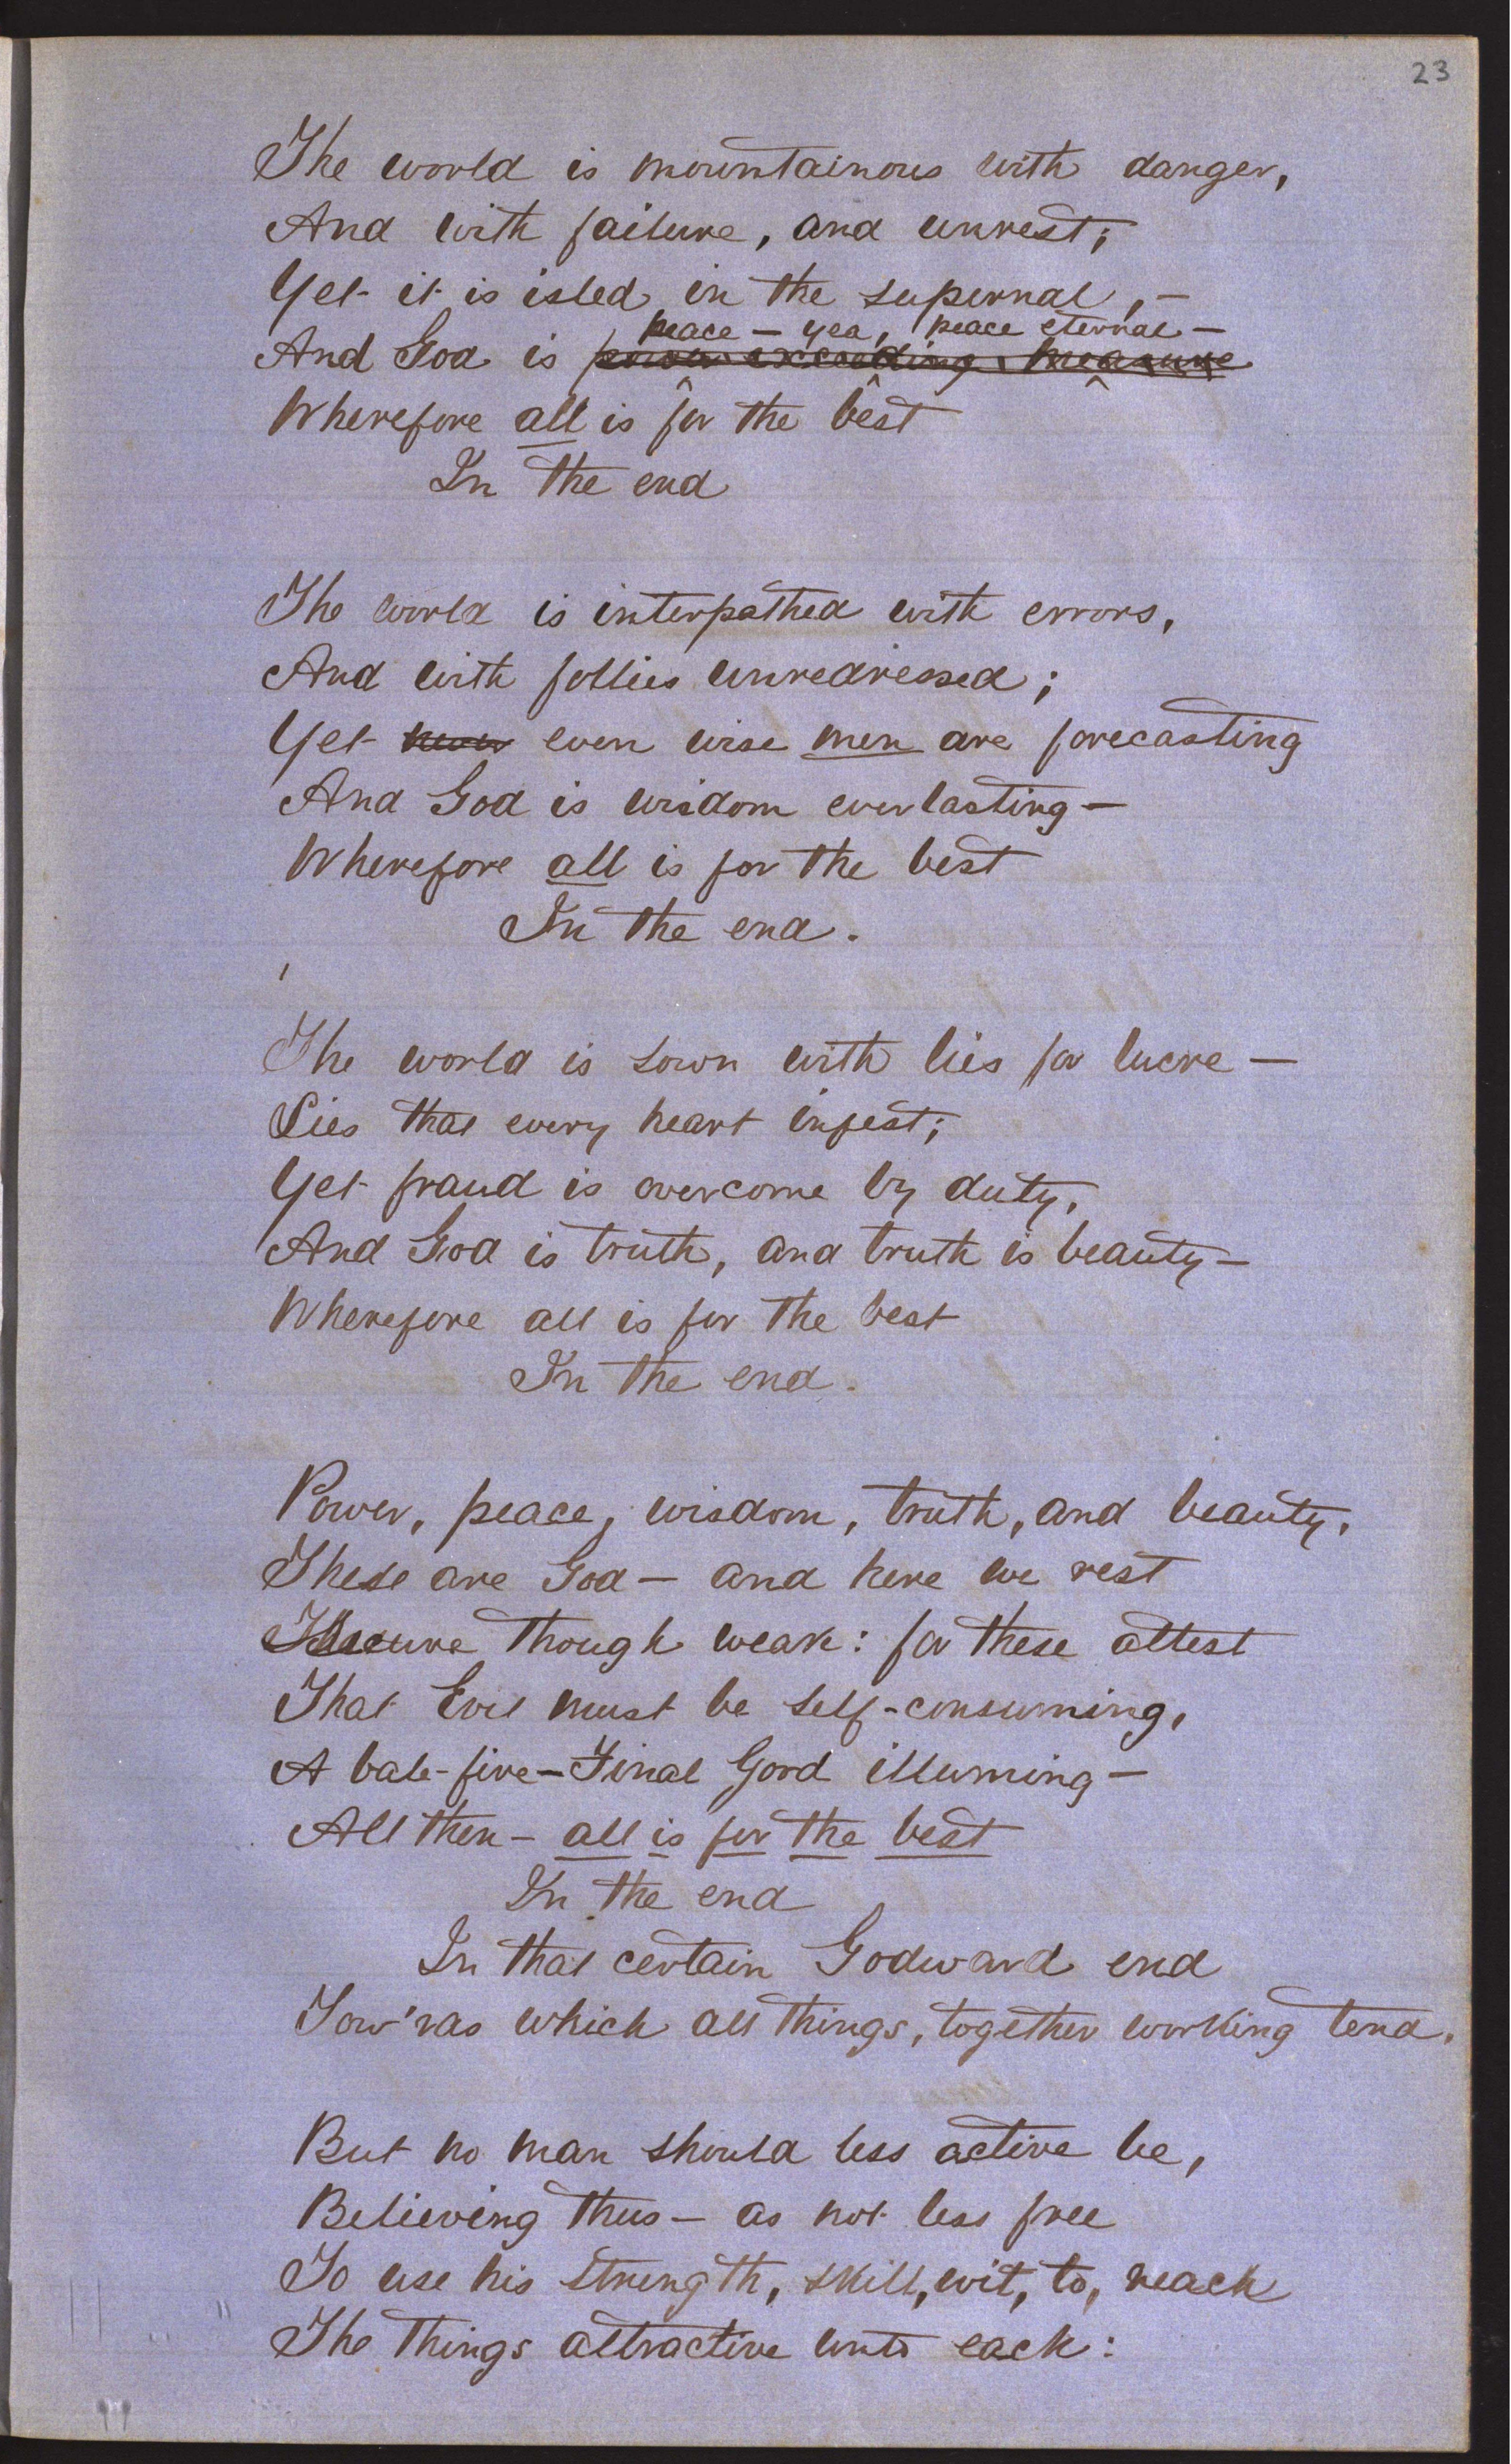 23
The world is mountainous with danger,
And with failure, and unrest;
Yet it is isled in the supernal, —
peace — yea, peace eternal —
And God is power exceeding measure
Wherefore all is for the best
In the end
The world is interpathed with errors,
And with follies unredressed;
Yet even wise men are forecasting
And God is wisdom everlasting —
Wherefore all is for the best
In the end.
The world is sown with lies for lucre —
Lies that every heart infest;
Yet fraud is overcome by duty,
And God is truth, and truth is beauty —
Wherefore all is for the best
In the end.
Power, peace, wisdom, truth, and beauty,
These are God — and here we rest
Secure though weak: for these attest
That Evil must be self-consuming,
A bale-fire — Final Good illuming —
All then — all is for the best
In the end
In that certain Godward end
Tow'rds which all things, together working tend.
But no man should less active be,
Believing thus — as not less free
To use his strength, skill, wit, to, reach
The things attractive unto each: